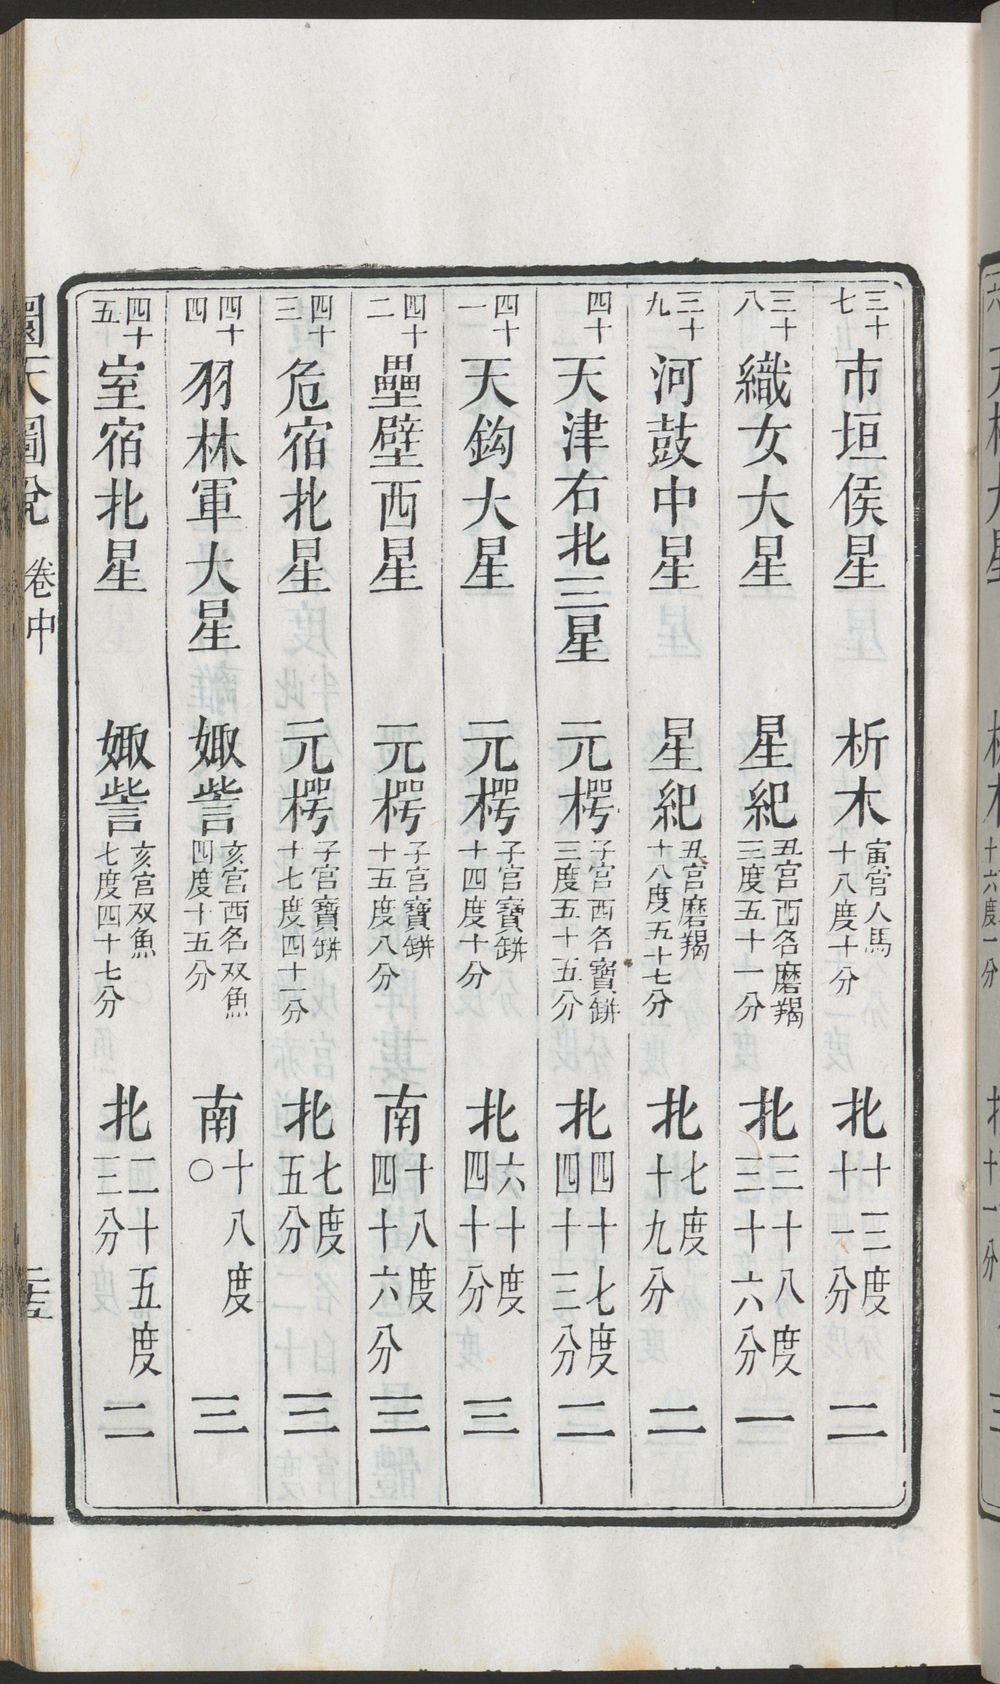 三十七 市垣侯星 析木 寅宮人馬十八度十分 北 十三度十一分 二
三十八 織女大星 星紀 丑宮西名磨羯三度五十一分 北 三十八度三十六分 一
三十九 河鼓中星 星紀 丑宮磨羯十八度五十七分 北 七度十九分 二
四十 天津右北三星 元枵 子宮西名寶缾三度五十五分 北 四十七度四十三分 二
四十一 天鈎大星 元枵 子宮寶缾十四度十分 北 六十度四十分 三
四十二 壘壁西星 元枵 子宮寶缾十五度八分 南 十八度四十六分 三
四十三 危宿北星 元枵 子宮寶缾十七度四十一分 北 七度五分 三
四十四 羽林軍大星 娵訾 亥宮西名双魚四度十五分 南 十八度〇 三
四十五 室宿北星 娵訾 亥宮双魚七度四十七分 北 二十五度三分 二
圜天圖說 卷中